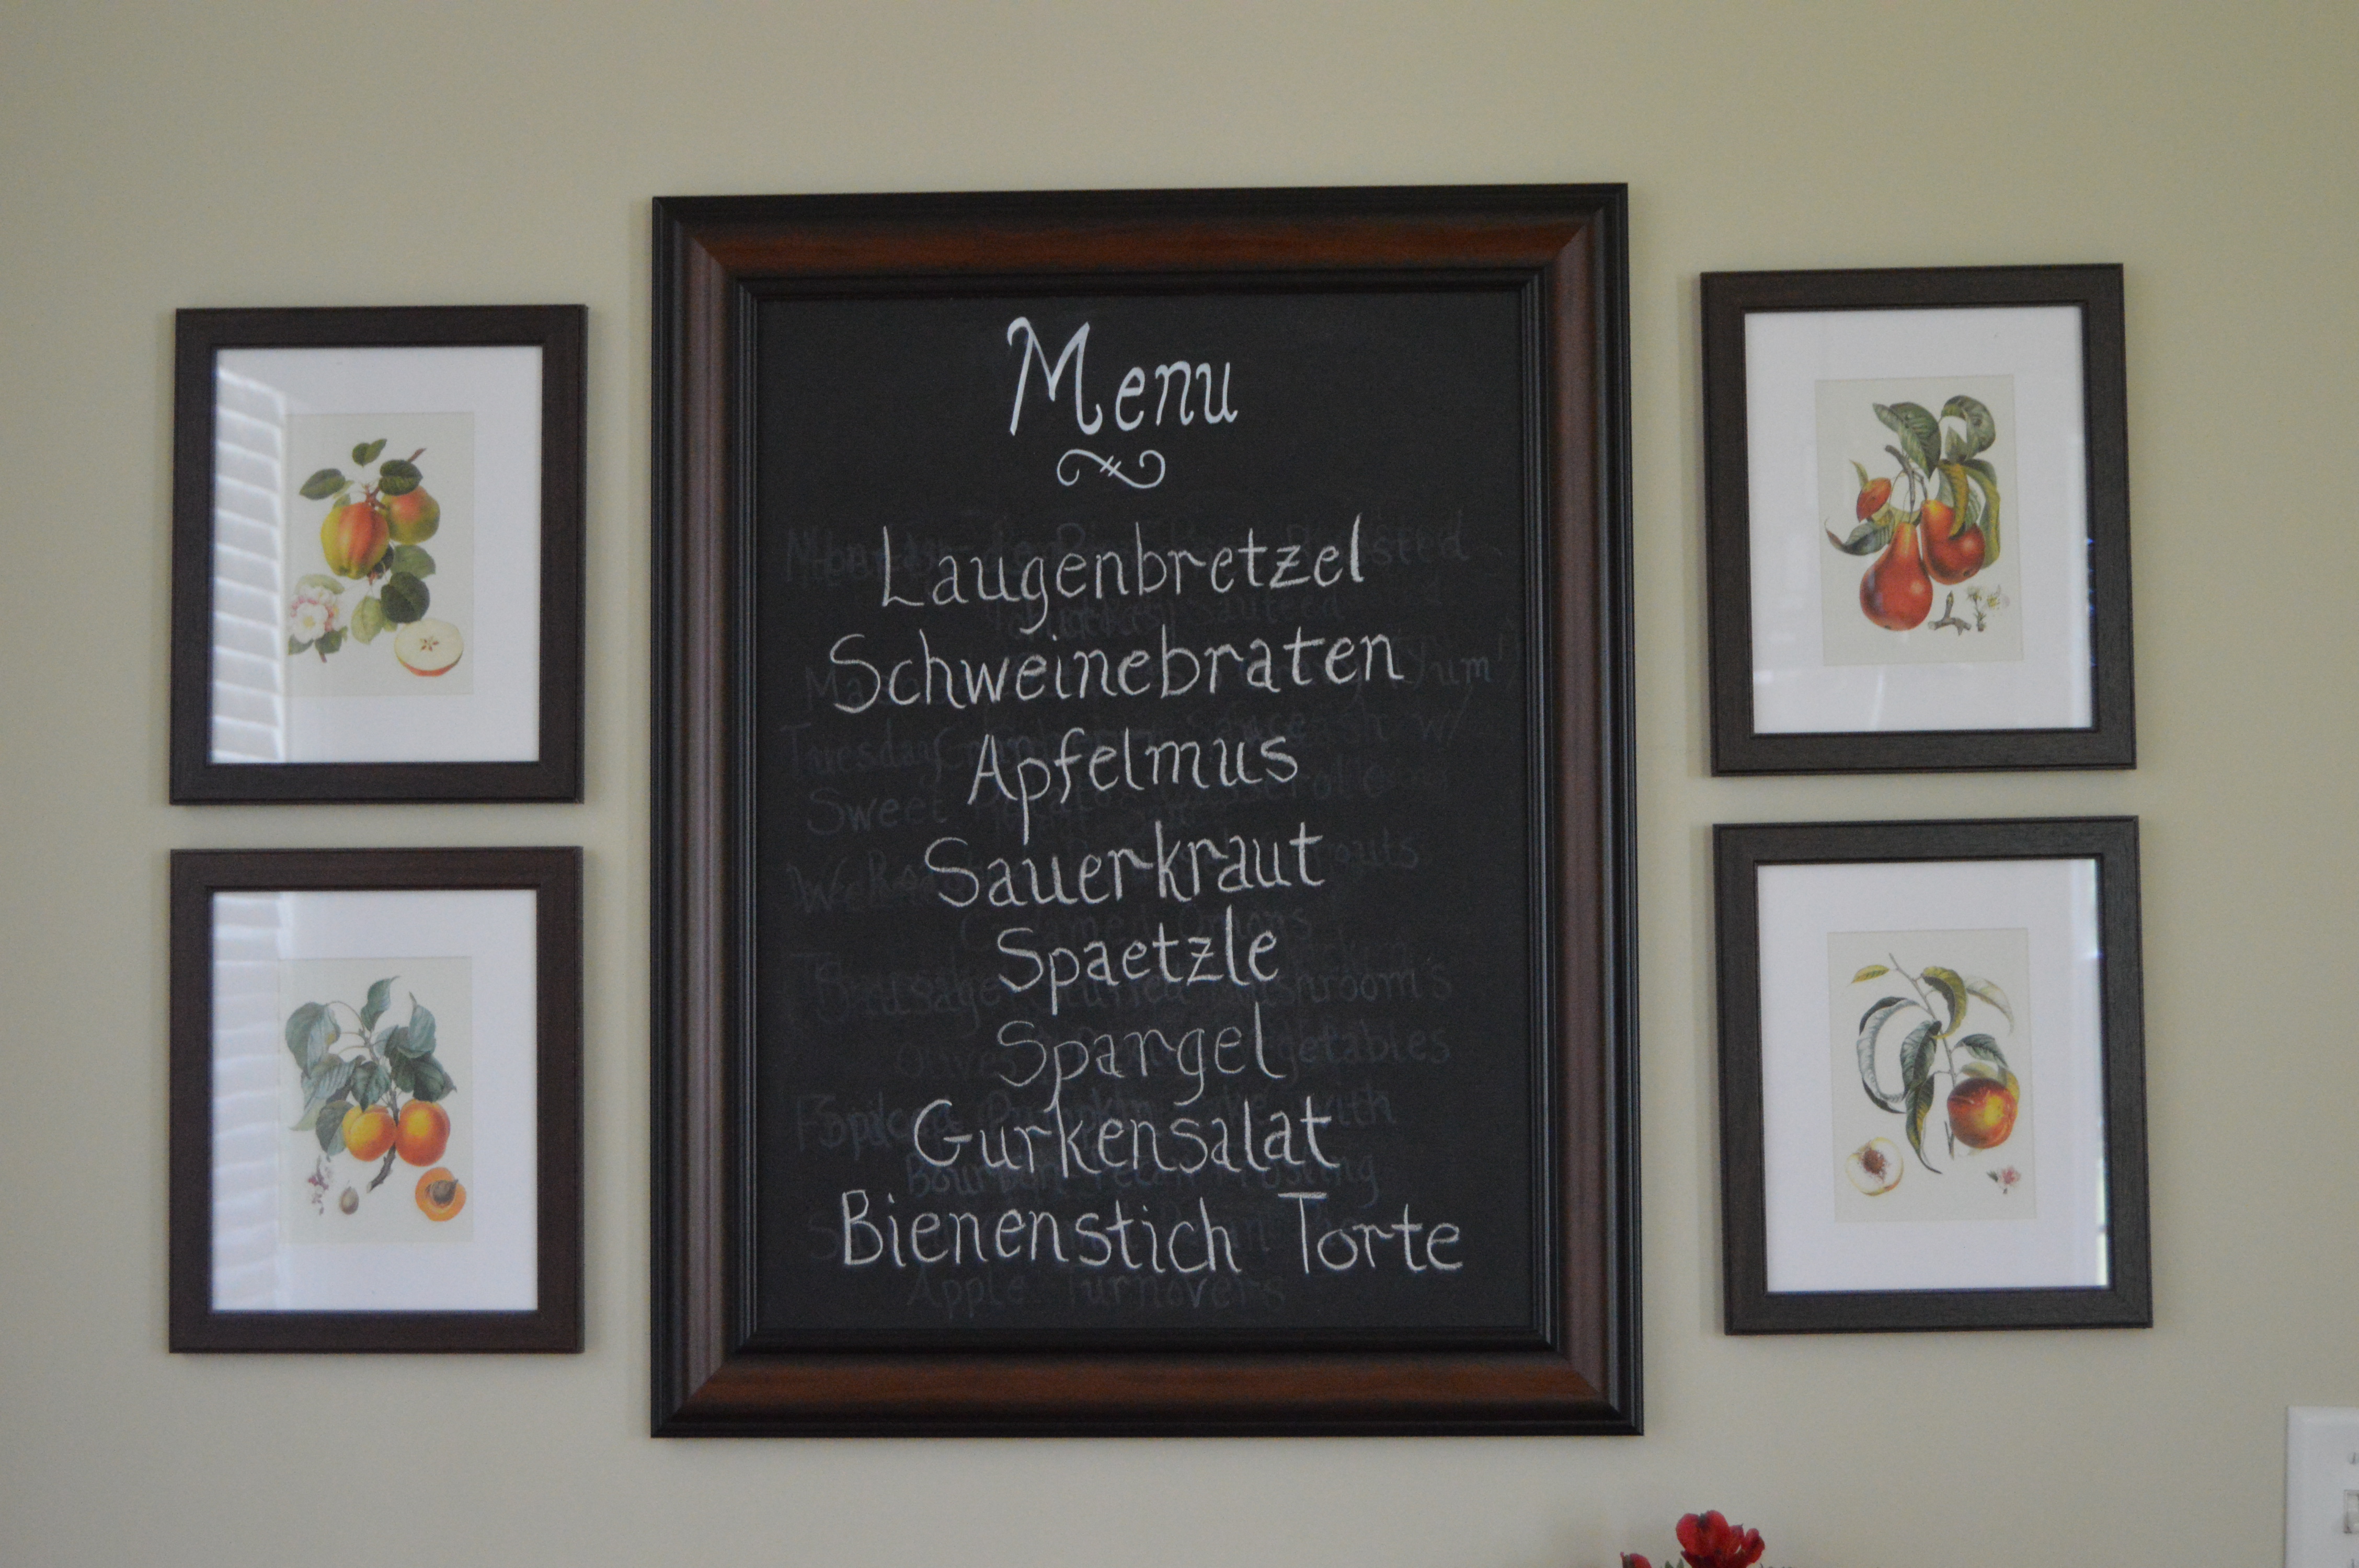 Menu
Laugenbretzel
Schweinebraten
Apfelmus
Sauerkraut
Spaetzle
Spargel
Gurkensalat
Bienenstich Torte